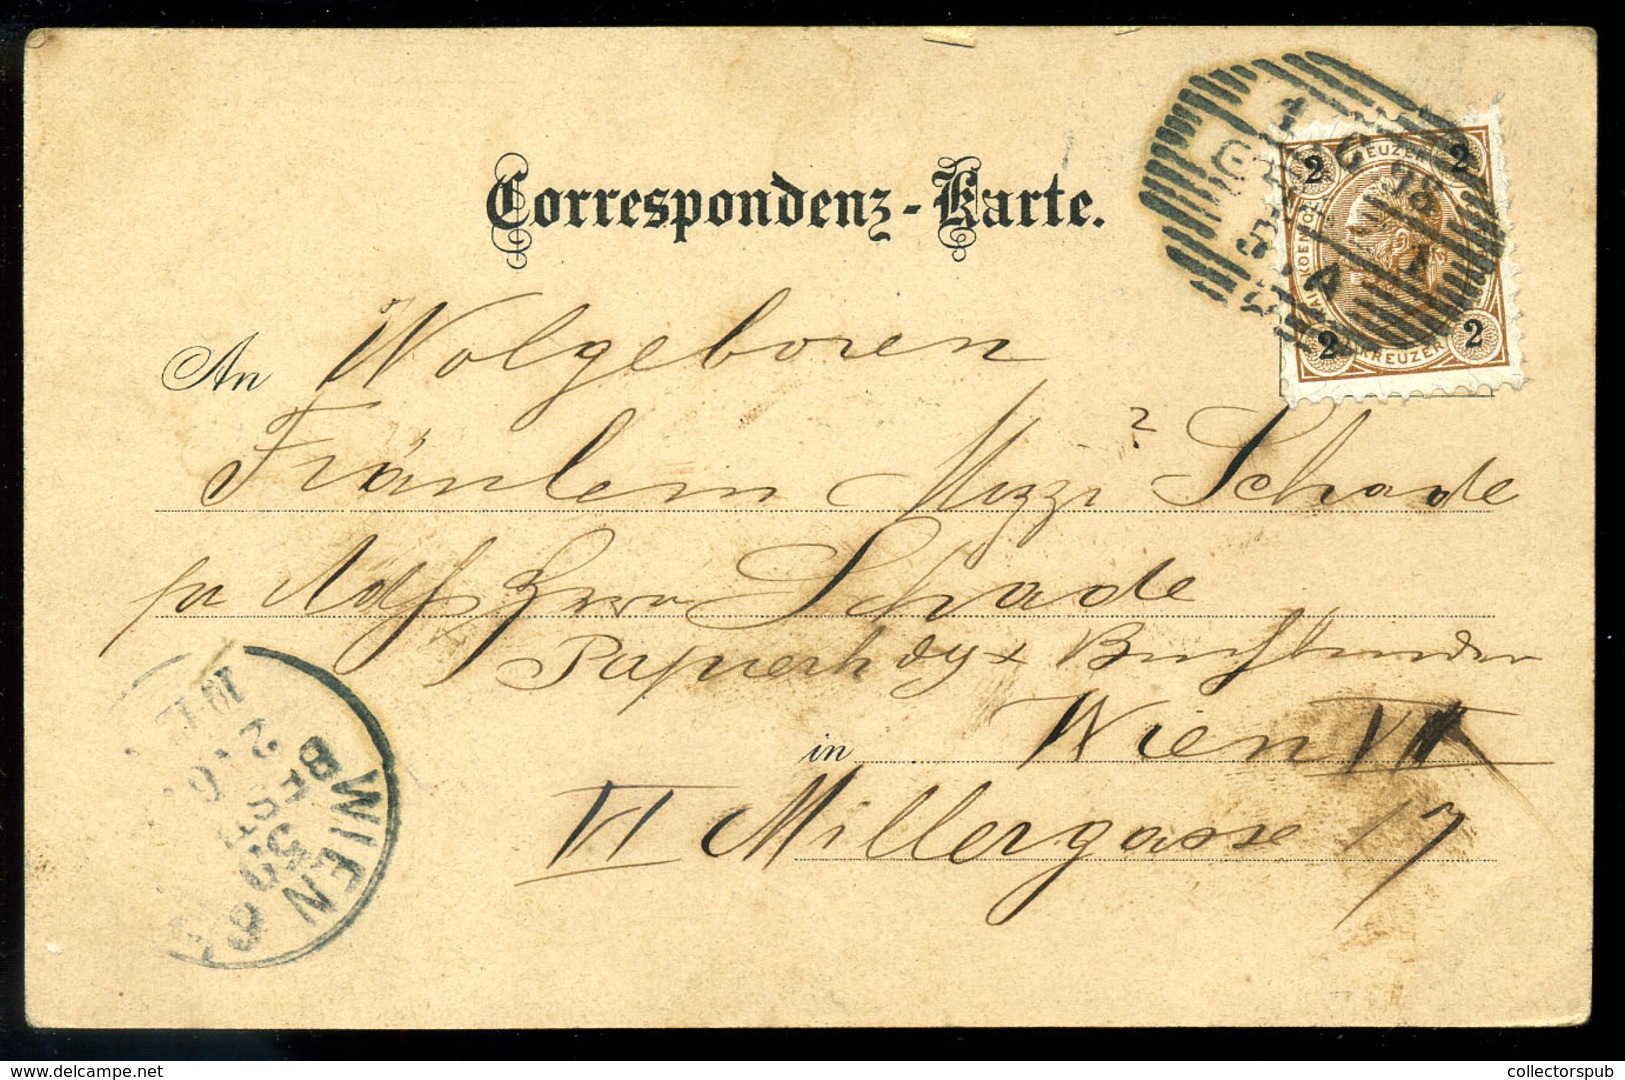 Correspondenz-Karte.
An Wolgeboren
Fräulein Mizzi Schade
pr Adr Schade
Papierhdg x Buchbinder
in Wien VII
VI Millergasse 17
2 KREUZER 2
2 KREUZER 2
98
WIEN
BESTELLT
collectorspub